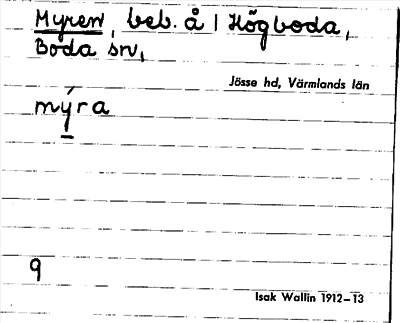 Myren, beb. å | Högboda,
Boda sn,
Jösse hd, Värmlands län
mýra
9
Isak Wallin 1912–13